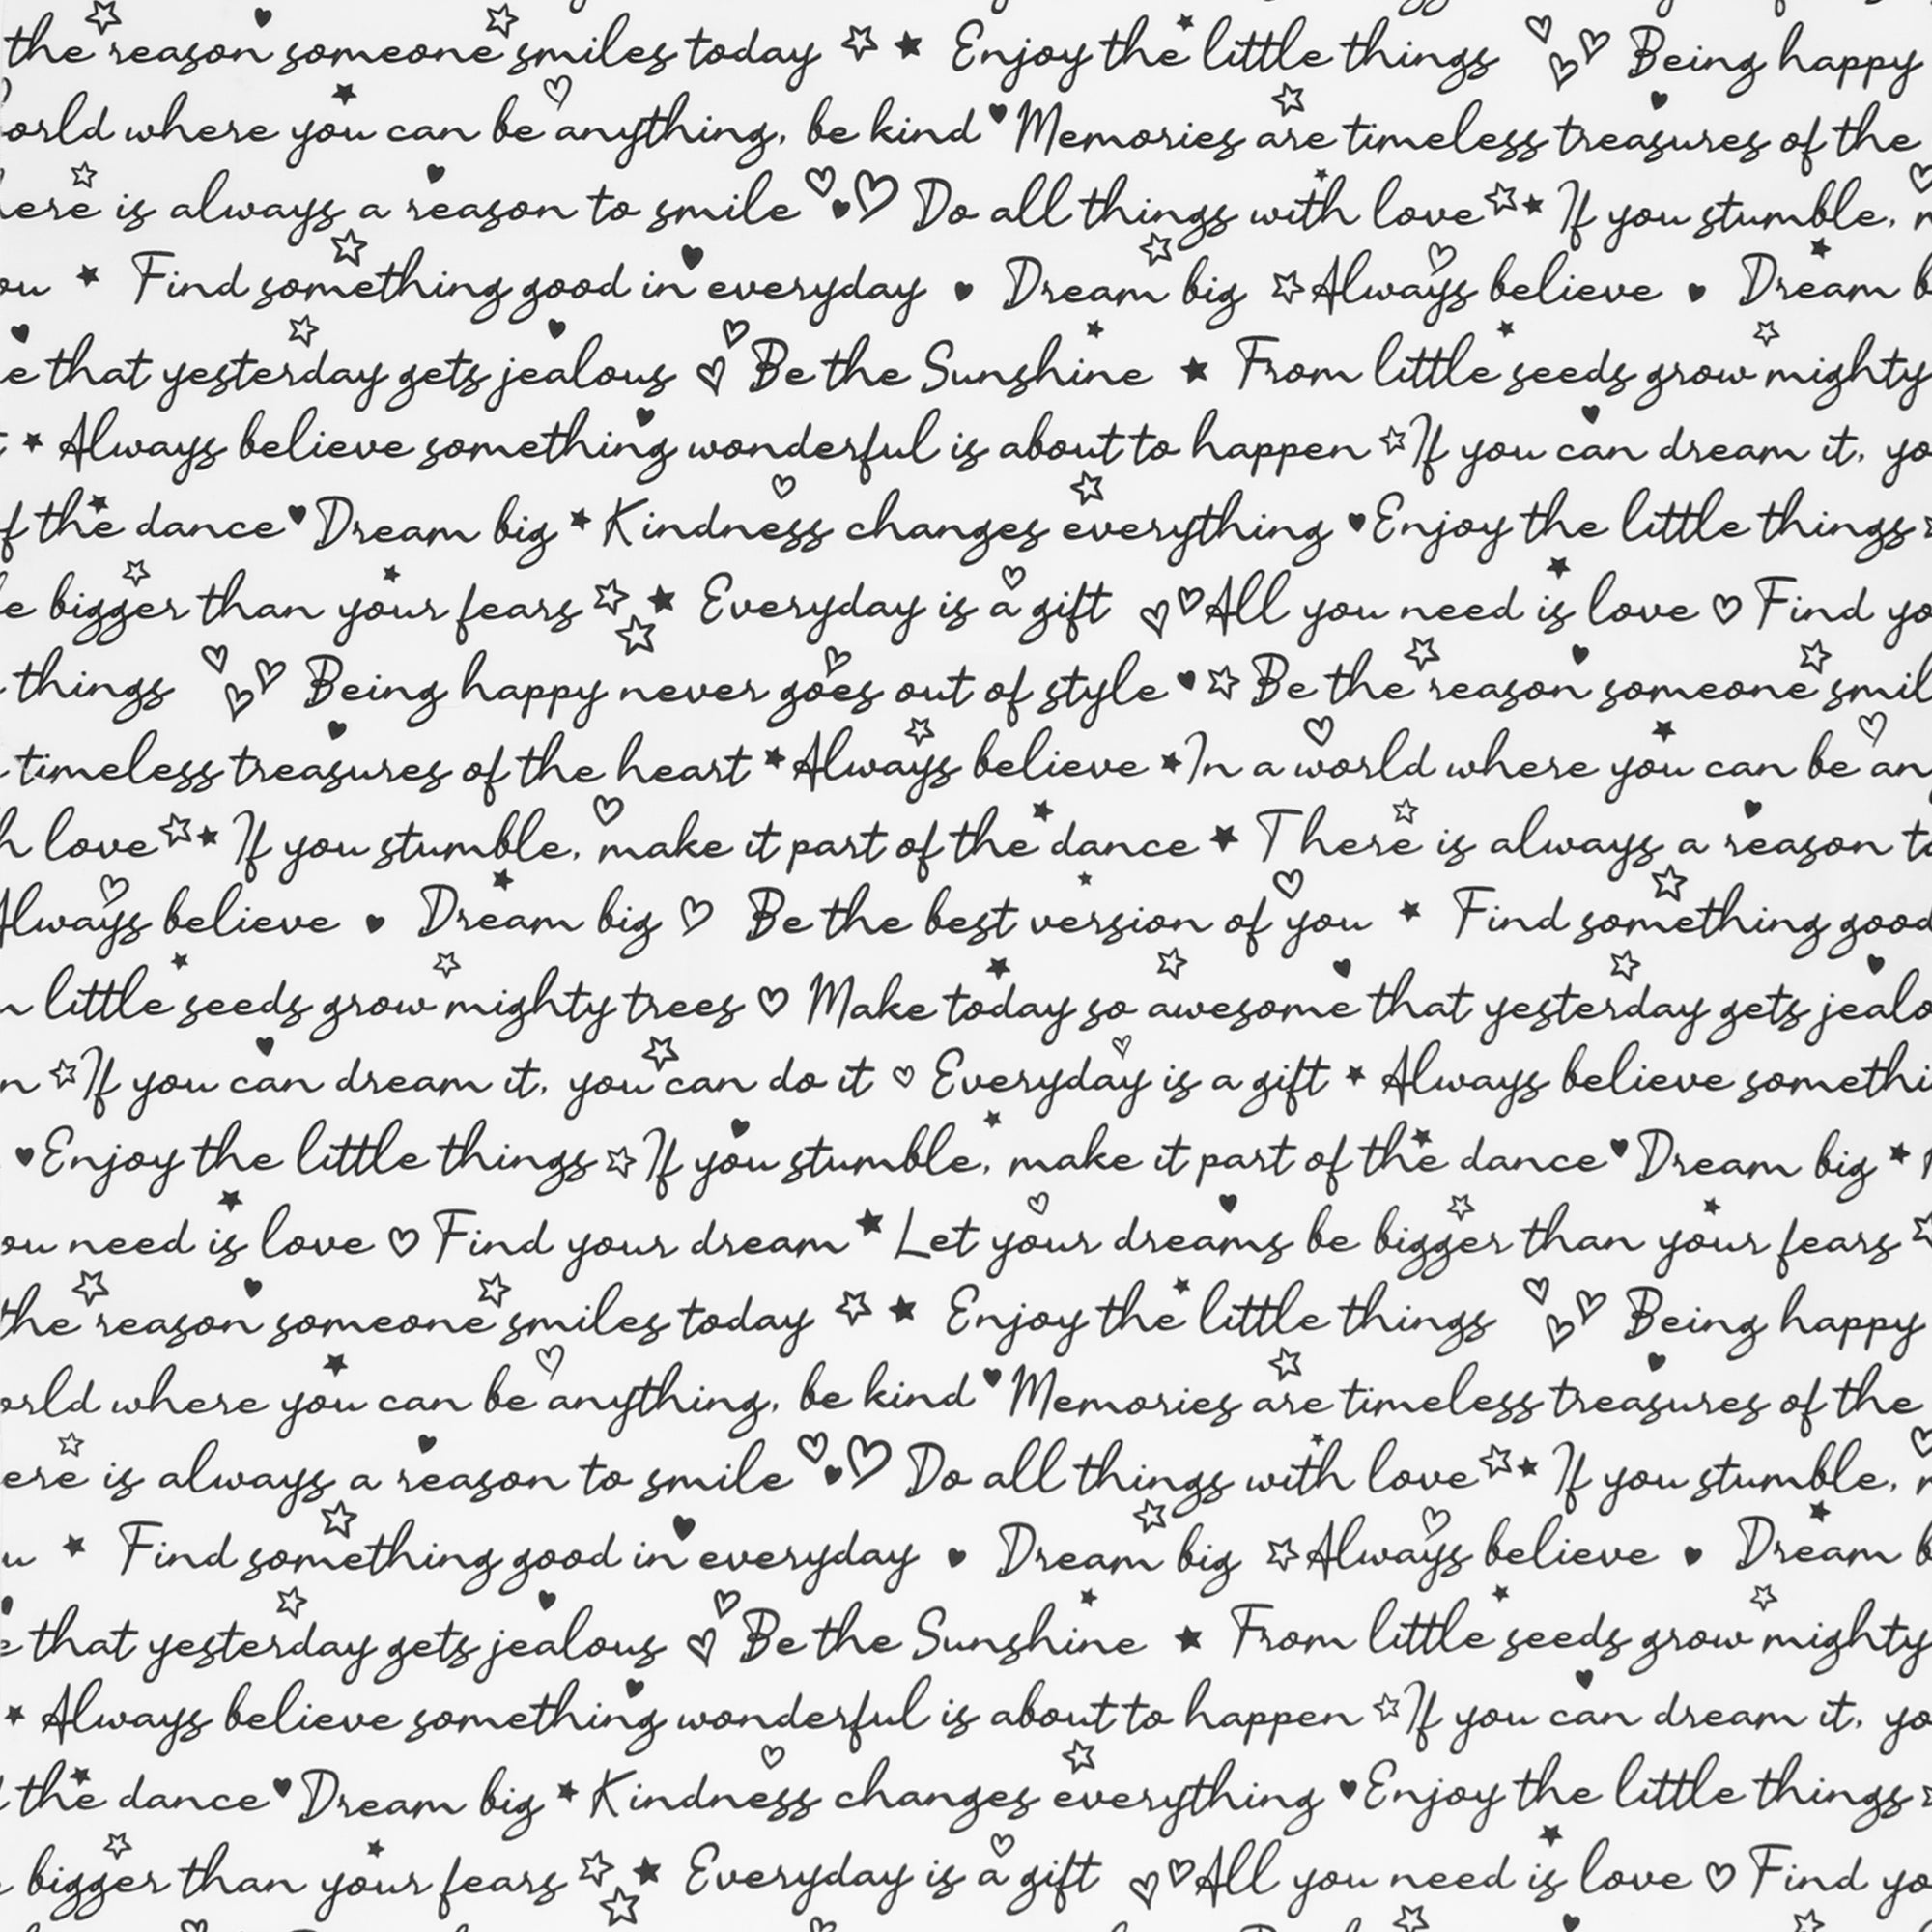 the reason someone smiles today Enjoy the little things Being happy
where you can be anything, be kind Memories are timeless treasures of the
is always a reason to smile Do all things with love If you stumble,
Find something good in everyday Dream big Always believe Dream
that yesterday gets jealous Be the Sunshine From little seeds grow mighty
Always believe something wonderful is about to happen If you can dream it,
the dance Dream big Kindness changes everything Enjoy the little things
bigger than your fears Everyday is a gift All you need is love Find
things Being happy never goes out of style Be the reason someone
timeless treasures of the heart Always believe In a world where you can be
love If you stumble, make it part of the dance There is always a reason
Always believe Dream big Be the best version of you Find something good
little seeds grow mighty trees Make today so awesome that yesterday gets
If you can dream it, you can do it Everyday is a gift Always believe
Enjoy the little things If you stumble, make it part of the dance Dream big
need is love Find your dream Let your dreams be bigger than your fears
the reason someone smiles today Enjoy the little things Being happy
where you can be anything, be kind Memories are timeless treasures of the
is always a reason to smile Do all things with love If you stumble,
Find something good in everyday Dream big Always believe Dream
that yesterday gets jealous Be the Sunshine From little seeds grow mighty
Always believe something wonderful is about to happen If you can dream it,
the dance Dream big Kindness changes everything Enjoy the little things
bigger than your fears Everyday is a gift All you need is love Find